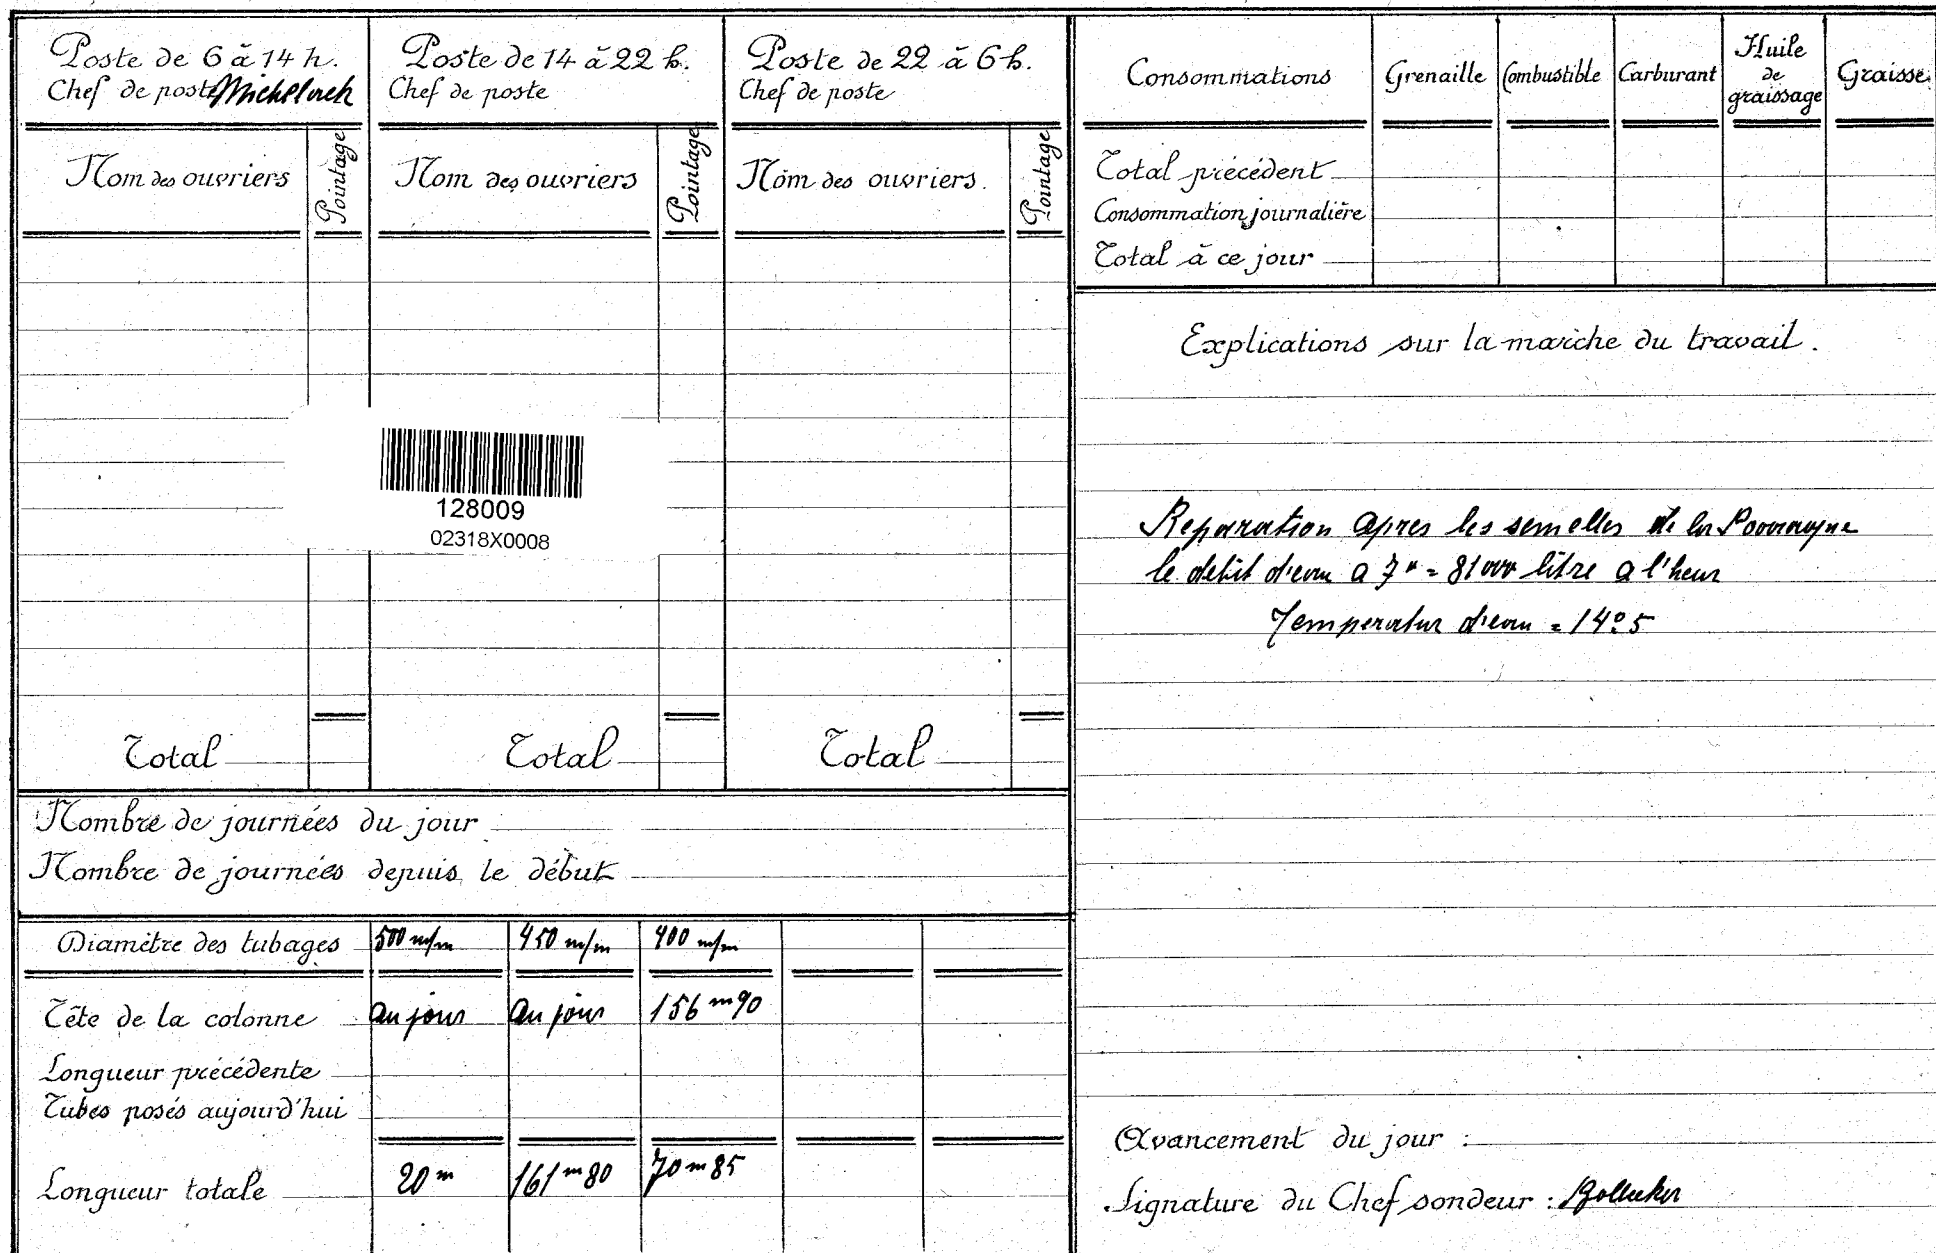 Poste de 6 à 14 h.
Chef de poste
Nom des ouvriers
Pointage
Total
Poste de 14 à 22 h.
Chef de poste
Nom des ouvriers
Pointage
Total
Poste de 22 à 6 h.
Chef de poste
Nom des ouvriers.
Pointage
Total
128009
02318X0008
Nombre de journées du jour
Nombre de journées depuis le début
Diamètre des tubages 500 m/m 450 m/m 400 m/m
Tête de la colonne au jour au jour 156 m 90
Longueur précédente
Tubes posés aujourd'hui
Longueur totale 20 m 161 m 80 70 m 85
Consommations Grenaille Combustible Carburant Huile de graissage Graisse
Total précédent
Consommation journalière
Total à ce jour
Explications sur la marche du travail.
Reparation apres les semelles de la
le debit d'eau a 7 = 81000 litre a l'heur
Temperatur d'eau = 14° 5
Avancement du jour :
Signature du Chef sondeur :